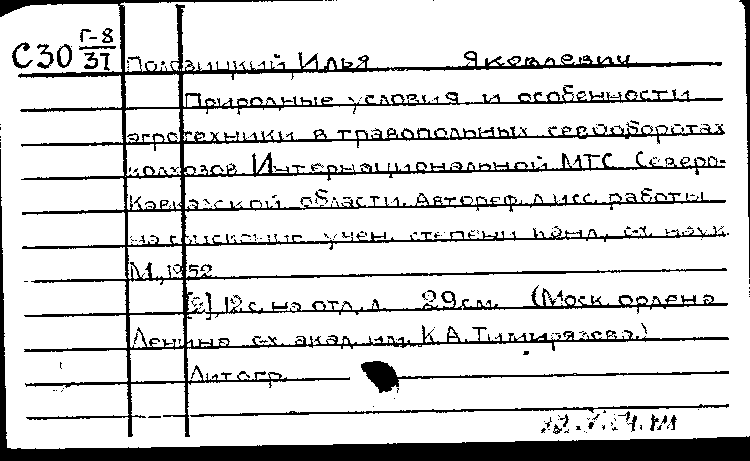 С30 Г-8
37
Полозицкий, Илья Яковлевич
Природные условия и особенности
агротехники в травопольных севооборотах
колхозов Интернациональной МТС Северо-
Кавказской области. Автореф. дисс. работы
на соискание учен. степени канд. с.-х. наук.
М., 1952.
[2], 12 с. на отд. л. 29 см. (Моск. ордена
Ленина с.-х. акад. им. К.А. Тимирязева.)
Литогр.